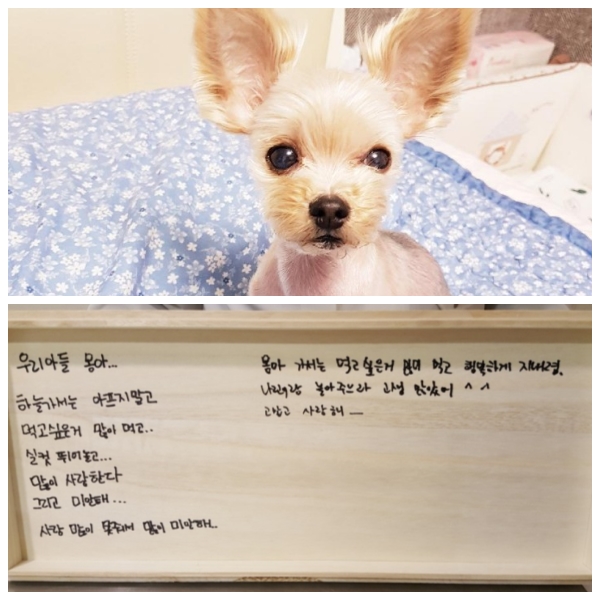 우리아들 몽아...
하늘가서는 아프지말고
먹고싶은거 많이 먹고..
실컷 뛰어놀고...
많이 사랑한다
그리고 미안해...
사랑 많이 못줘서 많이 미안해..
몽아 가서는 먹고싶은거 많이 먹고 행복하게 지내렴.
놀아주느라 고생 많았어 ^ ^
고맙고 사랑해 —